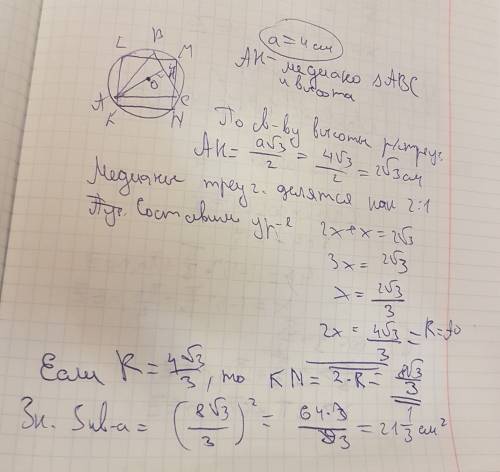 a = 4 см
L B M
H
O
A C
K N
AH - медиана ΔABC
и высота
По св-ву высоты р/треуг.
AH = a√3/2 = 4√3/2 = 2√3 см
Медианы треуг. делятся как 2:1
Составим ур-е
2x + x = 2√3
3x = 2√3
x = 2√3/3
2x = 4√3/3 = R =
Если R = 4√3/3, то KN = 2·R = 8√3/3
Зн. Sкв-а = (8√3/3)² = 64·3/93 = 21 1/3 см²